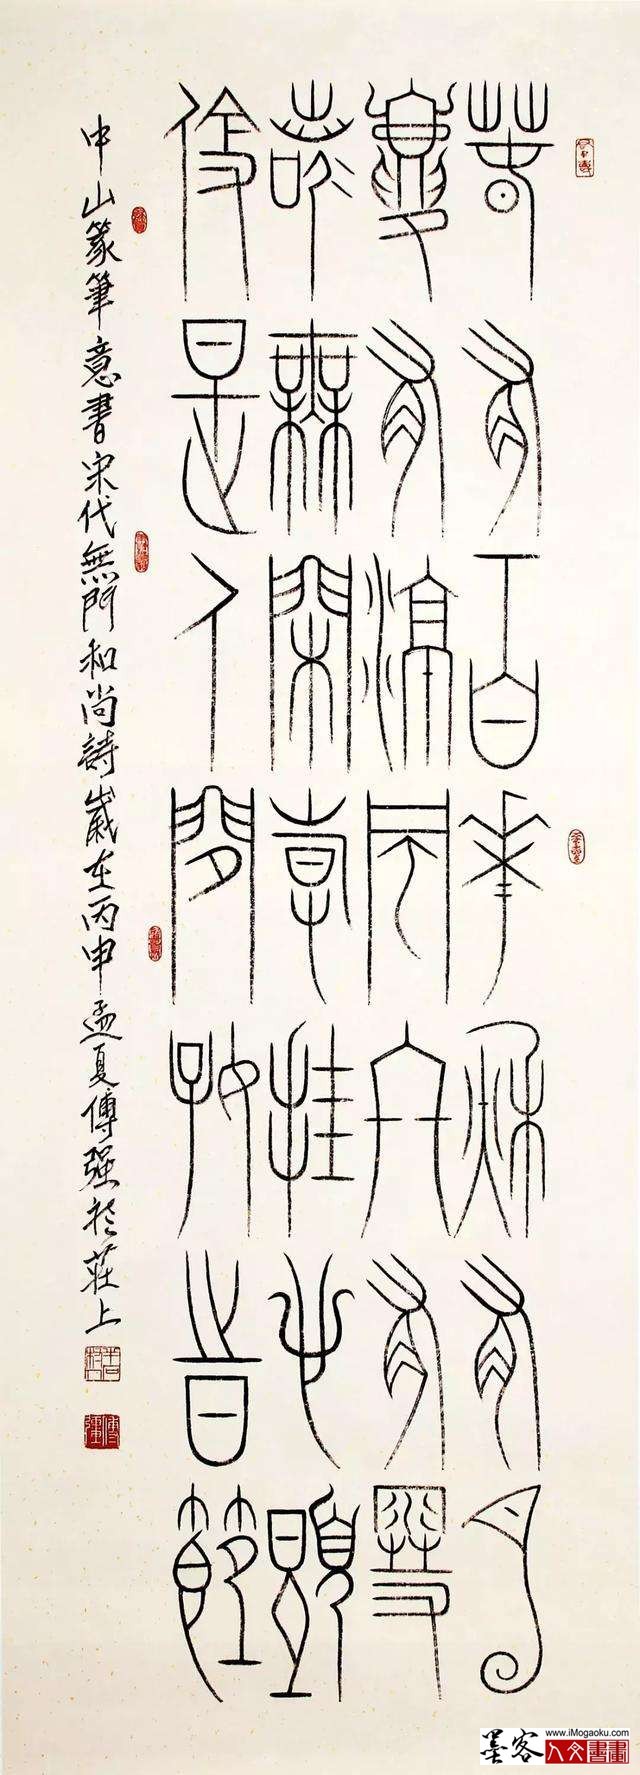 春有百花秋有月
夏有涼風冬有雪
若無閑事挂心頭
便是人間好時節
中山篆筆意書宋代無門和尚詩歲在丙申孟夏傅强於莊上
傅強
墨客
www.iMogaoku.com
人文書畫